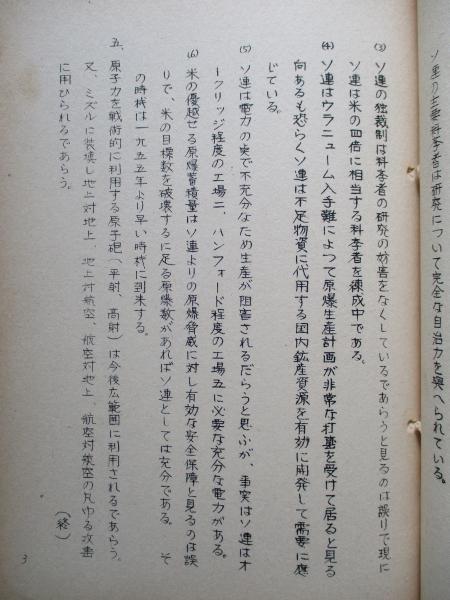 ソ連の主要科学者は研究について完全な自治力を與へられている。
(3) ソ連の独裁制は科学者の研究の妨害をなくしているであらうと見るのは誤りで現に
ソ連は米の四倍に相当する科学者を練成中である。
(4) ソ連はウラニューム入手難によつて原爆生産計画が非常な打撃を受けて居ると見る
向あるも恐らくソ連は不足物資に代用する国内鉱産資源を有効に開発して需要に應
じている。
(5) ソ連は電力の突で不充分なため生産が阻害されるだらうと思ふが、事実はソ連はオ
ークリッジ程度の工場二、ハンフォード程度の工場五に必要な充分な電力がある。
(6) 米の優越せる原爆蓄積量はソ連よりの原爆脅威に対し有効な安全保障と見るのは誤
りで、米の目標数を破壊するに足る原爆数があればソ連としては充分である。 そ
の時機は一九五五年より早い時機に到来する。
五、原子力を戦術的に利用する原子砲（平射、高射）は今後広範囲に利用されるであらう。
又、ミズルに装填し地上対地上、地上対航空、航空対地上、航空対航空の凡ゆる攻撃
に用ひられるであらう。
（終）
3